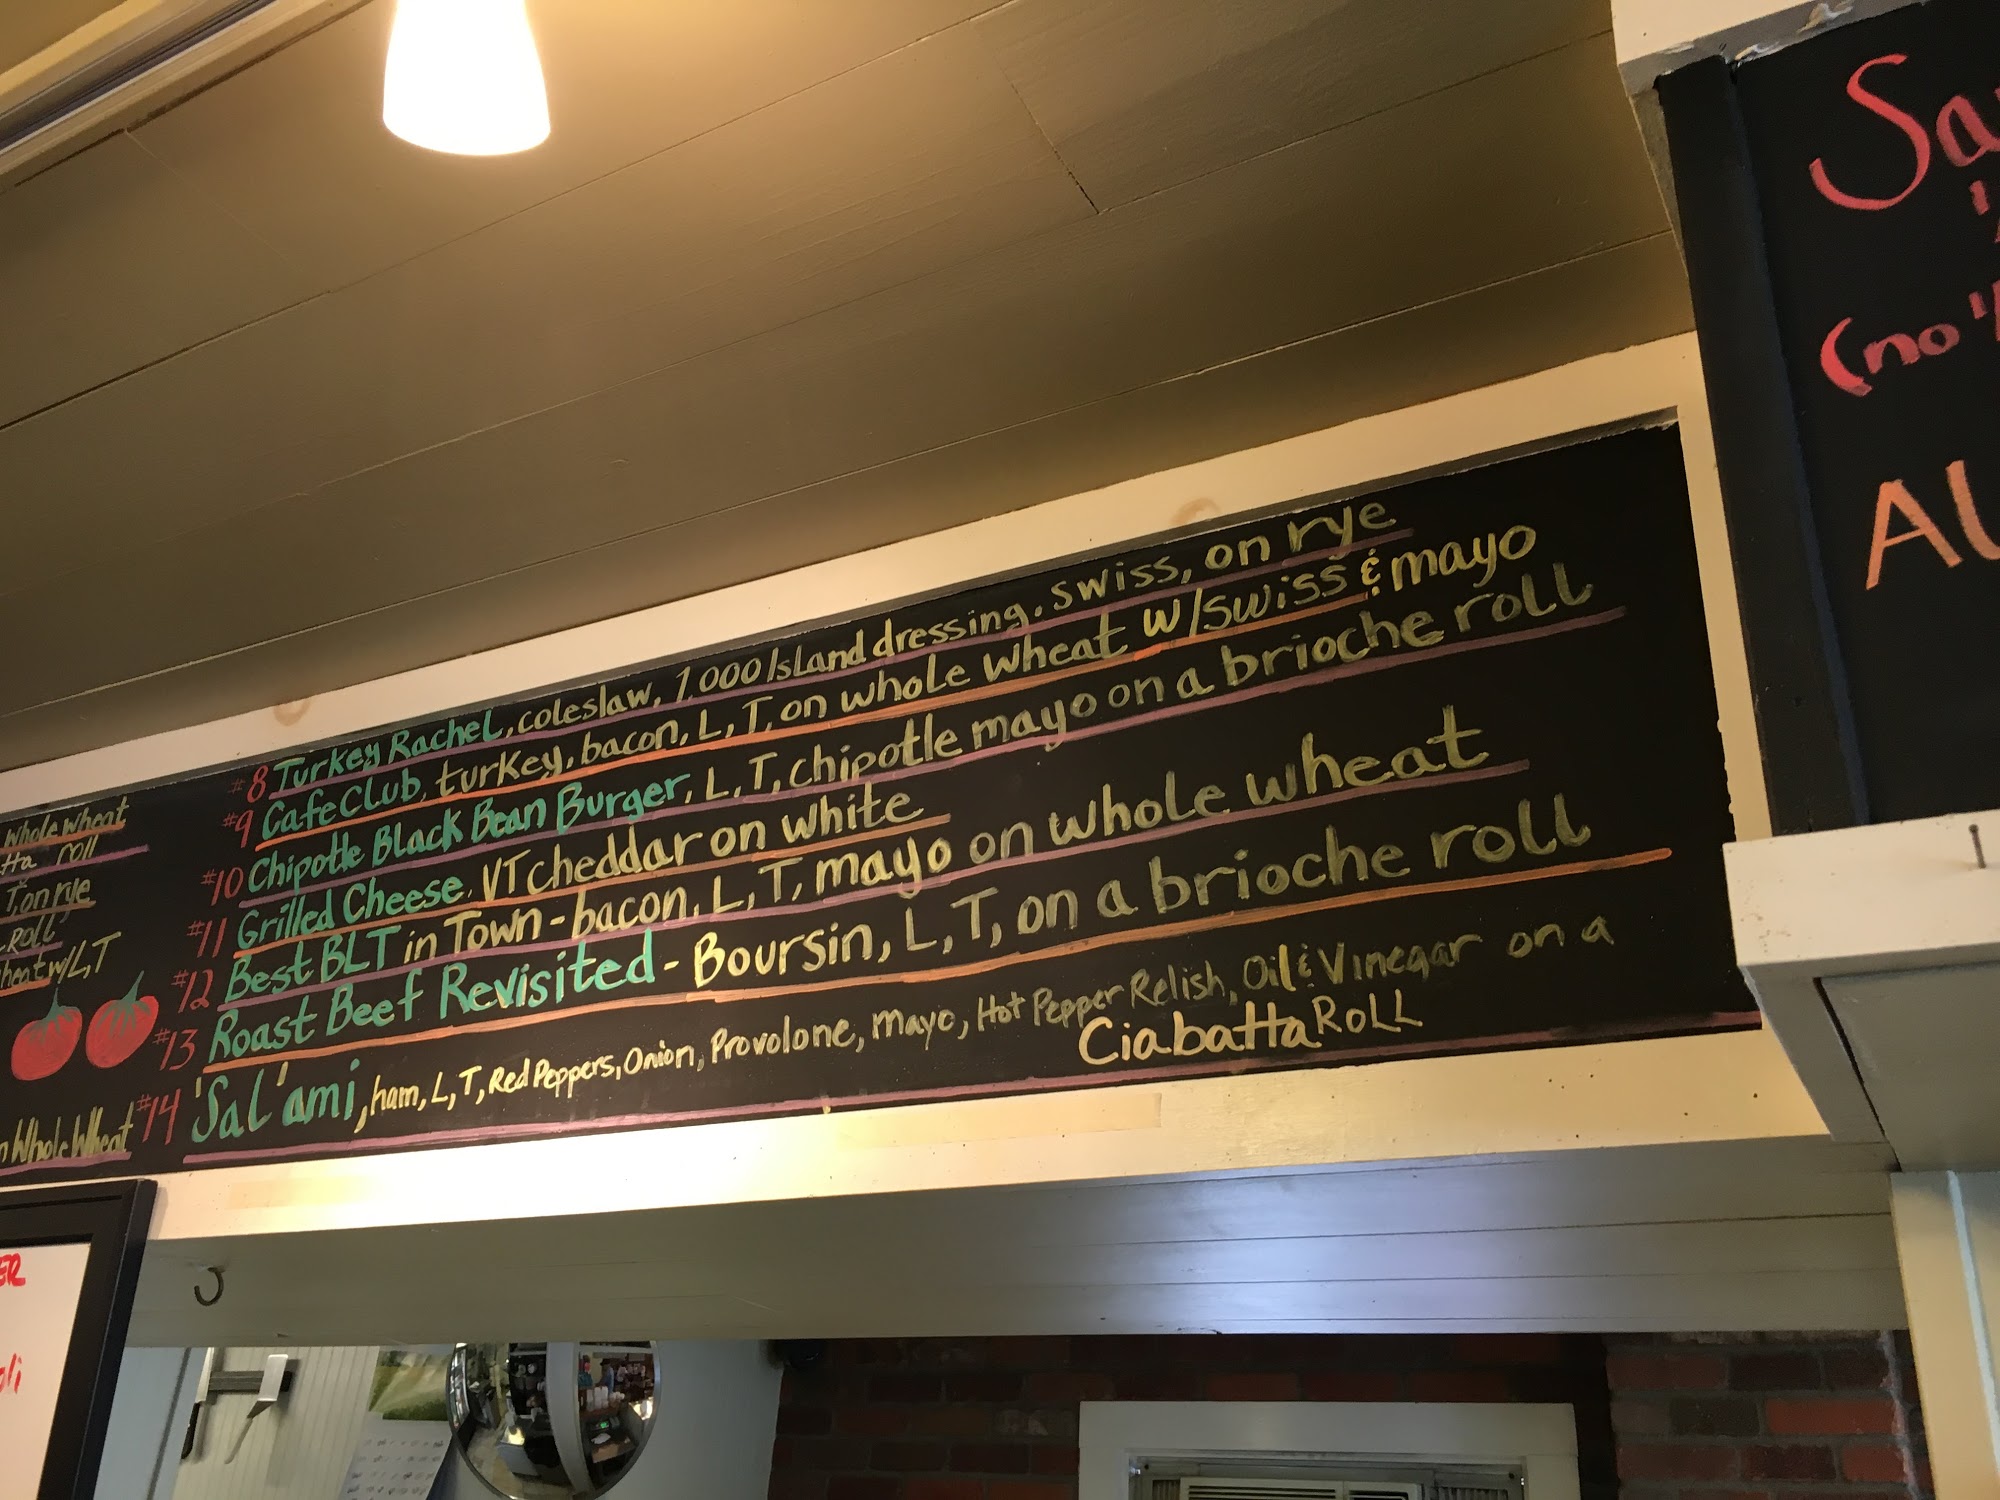 whole wheat
roll
T, on rye
Roll
w/L,T
Whole Wheat
#8 Turkey Rachel, coleslaw, 1,000 Island dressing, swiss, on rye
#9 Cafe Club, turkey, bacon, L, T, on whole wheat w/swiss & mayo
#10 Chipotle Black Bean Burger, L, T, chipotle mayo on a brioche roll
#11 Grilled Cheese, VT cheddar on white
#12 Best BLT in Town - bacon, L, T, mayo on whole wheat
#13 Roast Beef Revisited - Boursin, L, T, on a brioche roll
#14 'Sal'ami, ham, L, T, Red Peppers, Onion, Provolone, Mayo, Hot Pepper Relish, Oil & Vinegar on a
Ciabatta Roll
(no